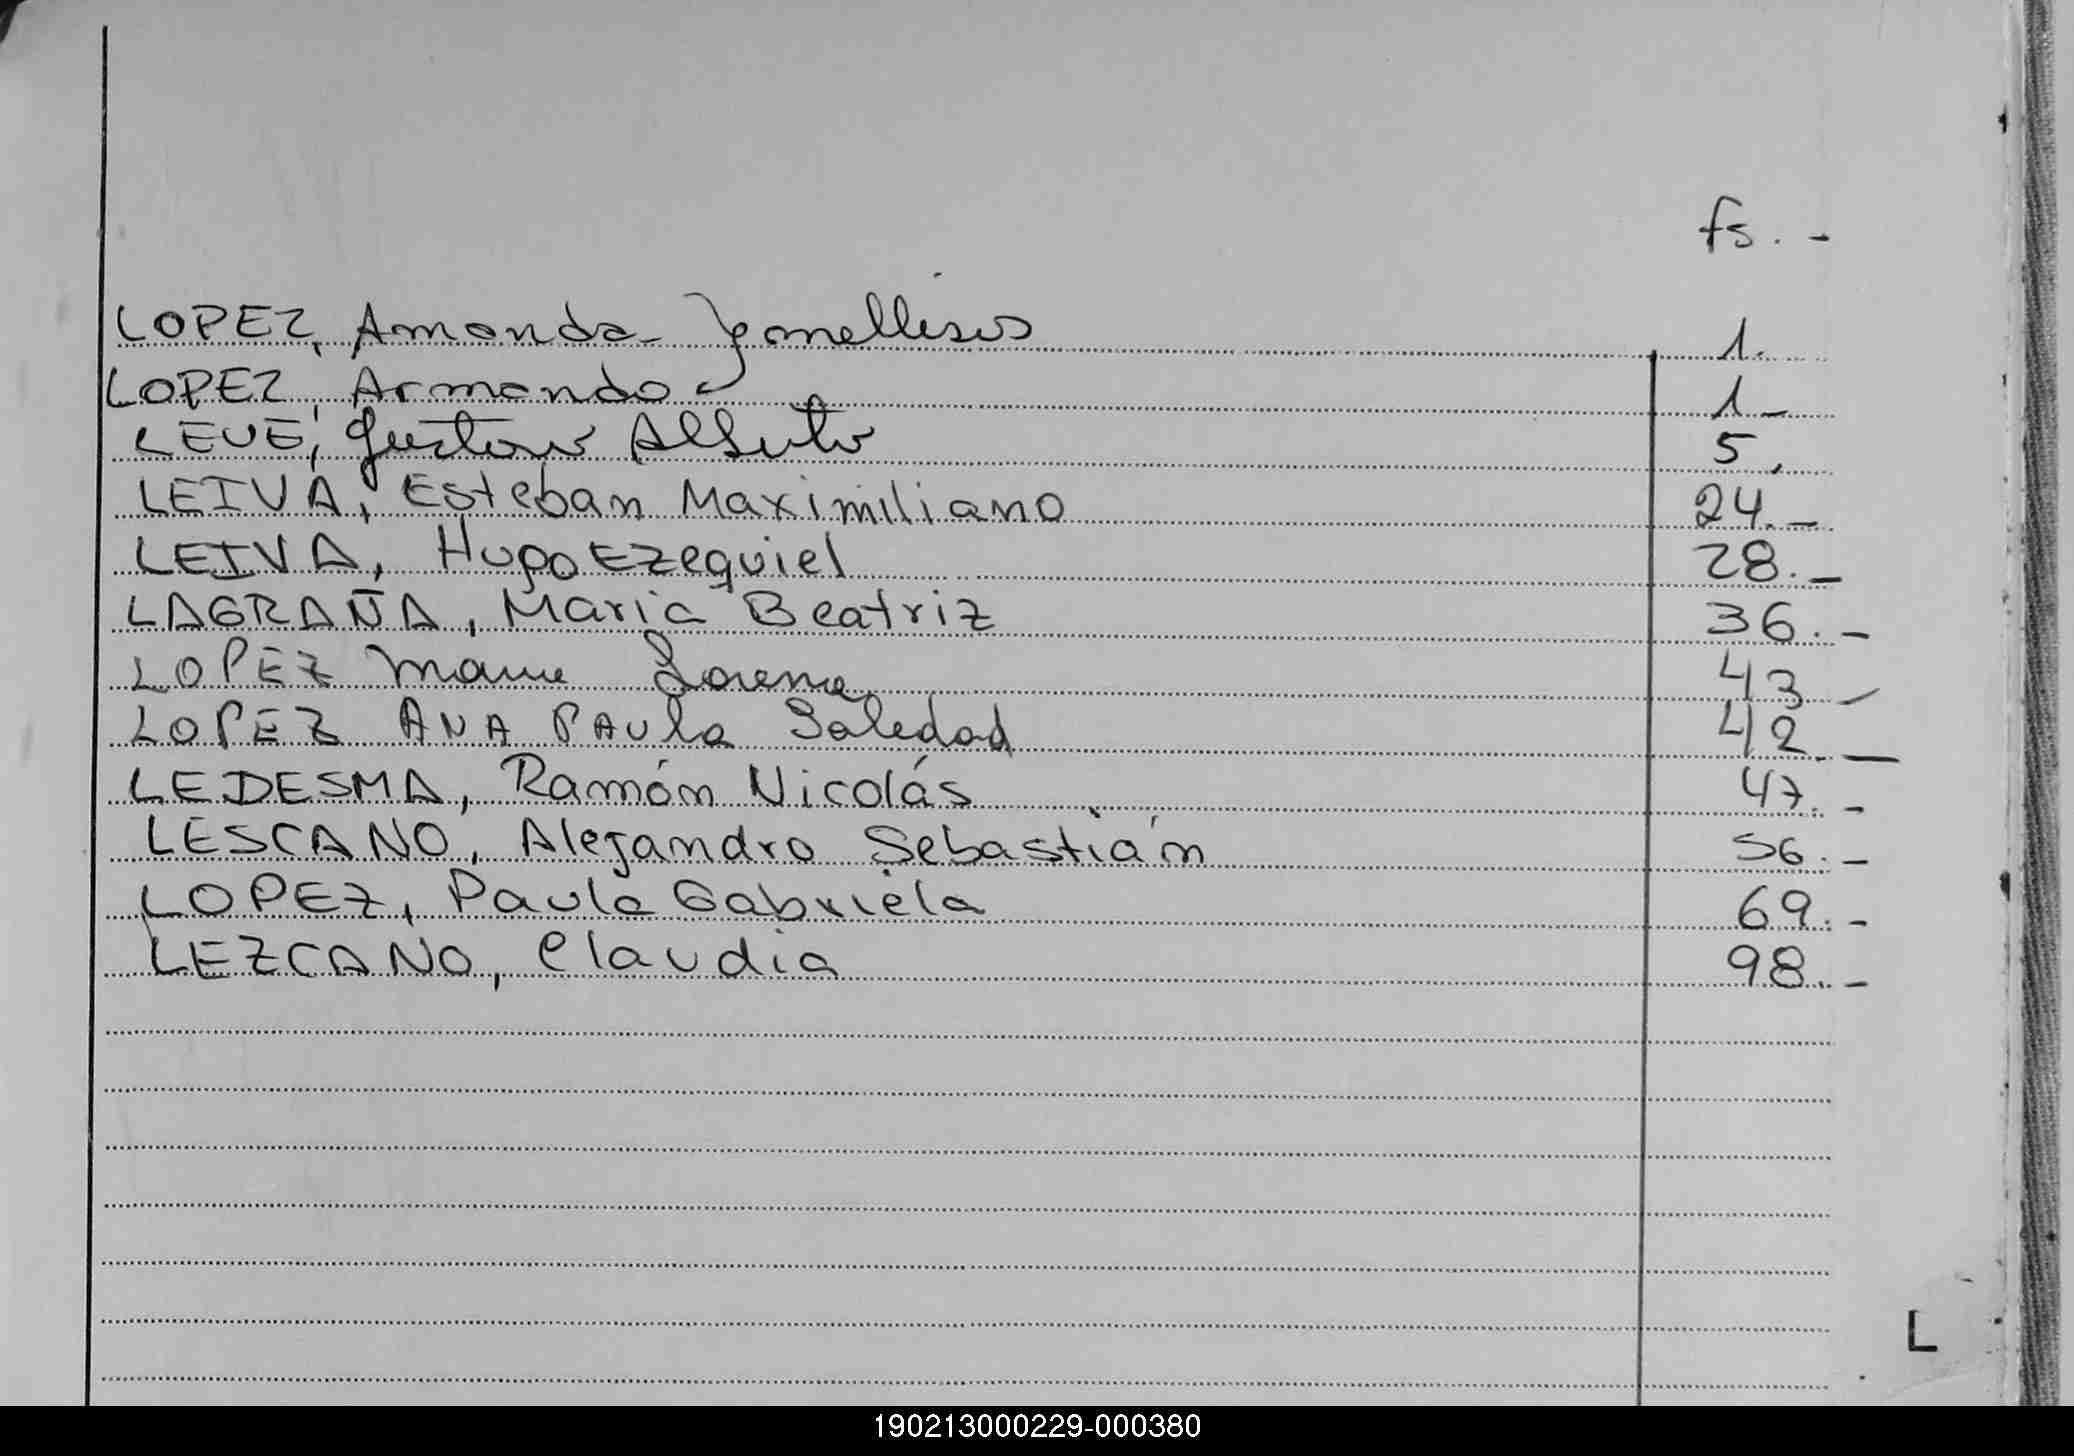 fs. -
LOPEZ, Amanda 1.
LOPEZ, Armando 1 -
LEUE, Gustavo Alberto 5.
LEIVA, Esteban Maximiliano 24. -
LEIVA, Hugo Ezequiel 28. -
LAGRAÑA, Maria Beatriz 36. -
LOPEZ Lorena 43 -
LOPEZ ANA PAula Soledad 42. -
LEDESMA, Ramón Nicolás 47. -
LESCANO, Alejandro Sebastián 56. -
LOPEZ, Paula Gabriela 69. -
LEZCANO, Claudia 98. -
L
190213000229-000380